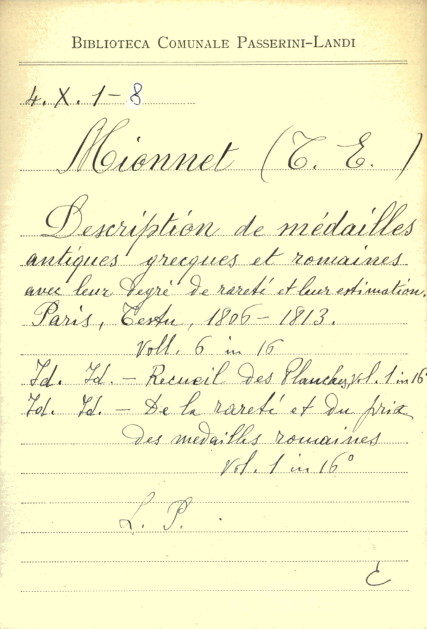 BIBLIOTECA COMUNALE PASSERINI-LANDI
4. X. 1-8
Mionnet (T. E.)
Description de médailles
antiques grecques et romaines
avec leur degré de rareté et leur estimation.
Paris, Testu, 1806-1813.
Voll. 6 in 16
Id. Id. - Recueil des Planches, vol. 1 in 16°
Id. Id. - De la rareté et du prix
des medailles romaines
Vol. 1 in 16°
L. P.